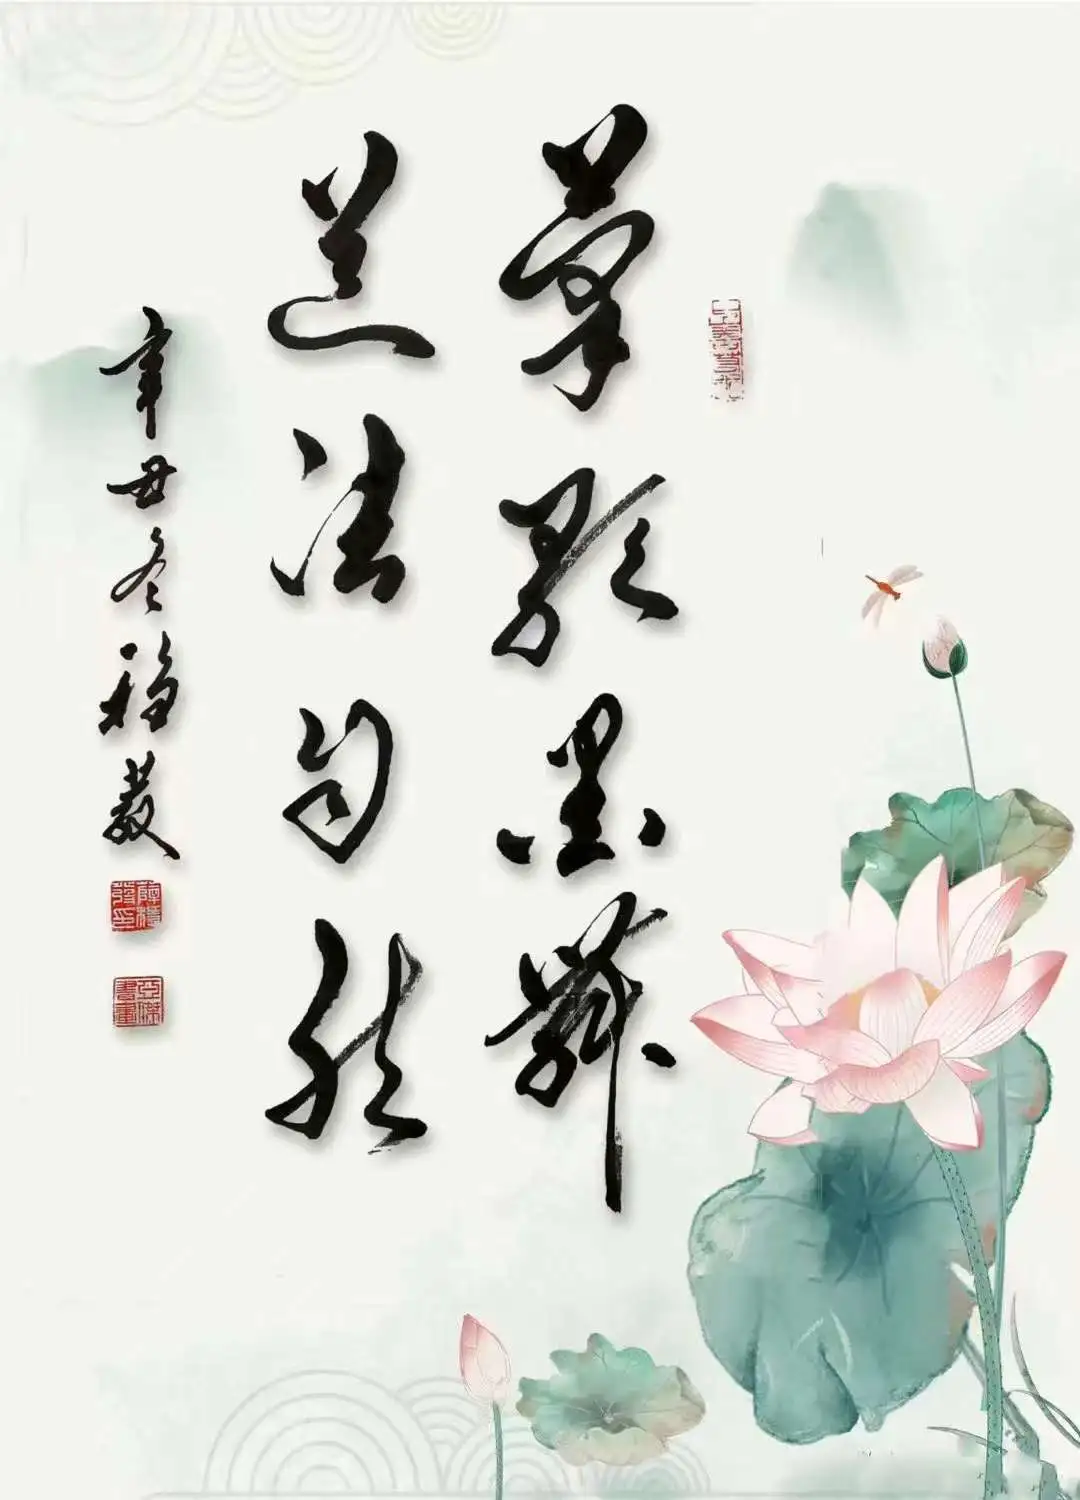 筆歌墨舞
道法自然
辛丑冬